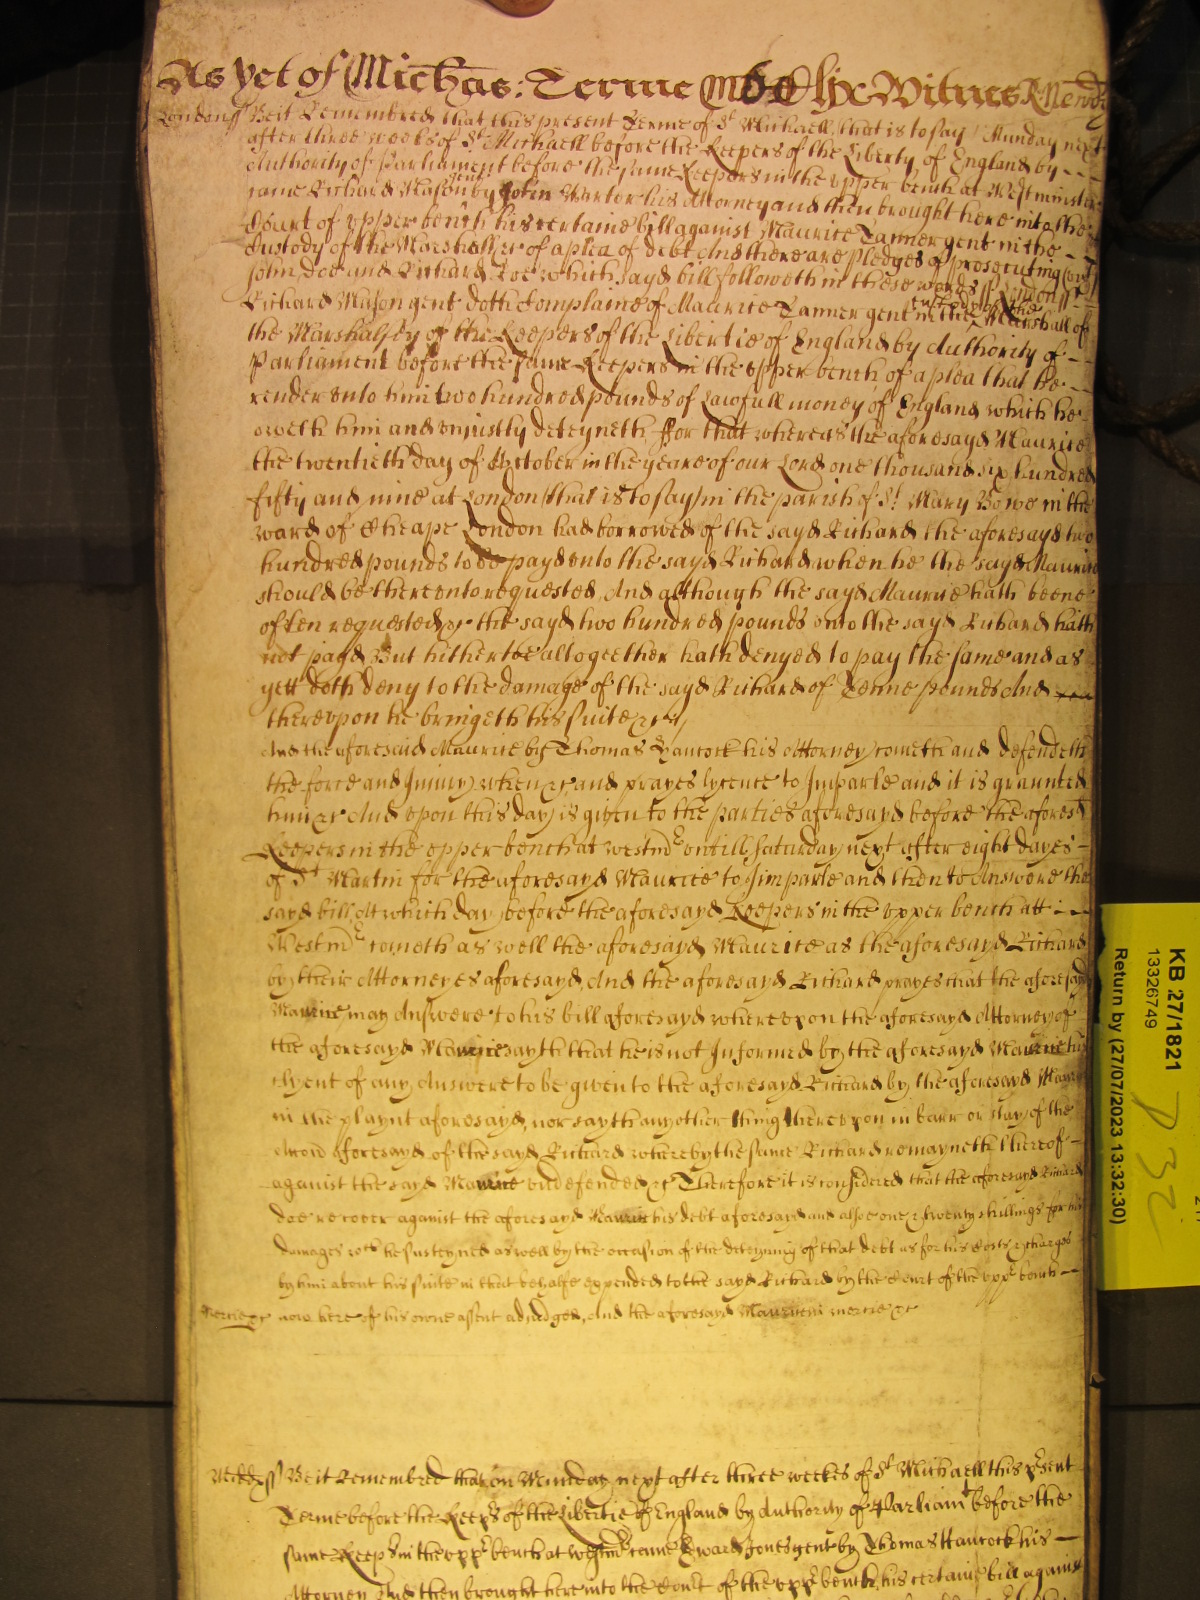 As yet of Michas: Terme MDCLIX Witnes
London ss Be it Remembred that this present Terme of St Michaell, that is to say Munday next
after three weekes of St Michaell before the Keepers of the Liberty of England by
Authority of Parliament before the same Keepers in the upper bench at Westminster
came Richard Mason gent by John Wartor his Attorney and then brought here into the
Court of upper bench his certaine bill against Maurice Tanner gent in the
Custody of the Marshall &c of a plea of debt And there are pledges of prosecuting
John Doe and Richard Roe which sayd bill followeth in these words London ss
Richard Mason gent doth Complaine of Maurice Tanner gent in the custody of the Marshall of
the Marshalsey of the Keepers of the Libertie of England by Authority of
Parliament before the same Keepers in the upper bench of a plea that he
render unto him two hundred pounds of Lawfull money of England which he
oweth him and unjustly deteyneth ffor that whereas the aforesayd Maurice
the twentieth day of October in the yeare of our Lord one thousand six hundred
fifty and nine at London (that is to say) in the parish of St Mary Bowe in the
ward of Cheape London had borrowed of the sayd Richard the aforesayd two
hundred pounds to be payd unto the sayd Richard when he the sayd Maurice
should be thereunto requested, And although the sayd Maurice hath beene
often requested &c the sayd two hundred pounds unto the sayd Richard hath
not payd But hithertoe altogeether hath denyed to pay the same and as
yett doth deny to the damage of the sayd Richard of Tenne pounds And
thereupon he bringeth his suite &c
And the aforesaid Maurice by Thomas Hancock his Attorney cometh and defendeth
the force and Injury when &c and prayes lycence to Imparle and it is graunted
him &c And upon this day is given to the parties aforesayd before the aforesd
Keepers in the upper bench at Westmr untill Saturday next after eight dayes
of St Martin for the aforesayd Maurice to Imparle and then to Answere the
sayd bill At which day before the aforesayd Keepers in the upper bench att
Westmr cometh as well the aforesayd Maurice as the aforesayd Richard
by their Attorneyes aforesayd, And the aforesayd Richard prayes that the aforesayd
Maurice may Answere to his bill aforesayd whereupon the aforesayd Attorney of
the aforesayd Maurice sayth that he is not Informed by the aforesayd Maurice his
Clyent of any Answere to be given to the aforesayd Richard by the aforesayd Maurice
in the playnt aforesayd, nor sayth any other thing thereupon in barr or stay of the
Accon aforesayd of the sayd Richard whereby the same Richard remayneth thereof
against the sayd Maurice undefended &c Therefore it is considered that the aforesayd Richard
doe recover against the aforesayd Maurice his debt aforesayd and alsoe one & twenty shillings for his
damages wch he susteyned as well by the occasion of the deteyning of that debt as for his Costs & charges
by him about his suite in that behalfe expended to the sayd Richard by the Court of the uppr bench
Mercie &c now here of his owne assent adjudged, And the aforesayd Maurice in mercie &c
Midd ss Be it Remembred that on Munday next after three weekes of St Michaell this psent
Terme before the Keeprs of the Libertie of England by Authority of Parliamt before the
same Keeprs in the uppr bench at Westmr came Edward Jones gent by Thomas Hancock his
Attorney And then brought here into the Court of the uppr bench, his certaine bill against
KB 27/1821
13326749
Return by (27/07/2023 13:32:30)